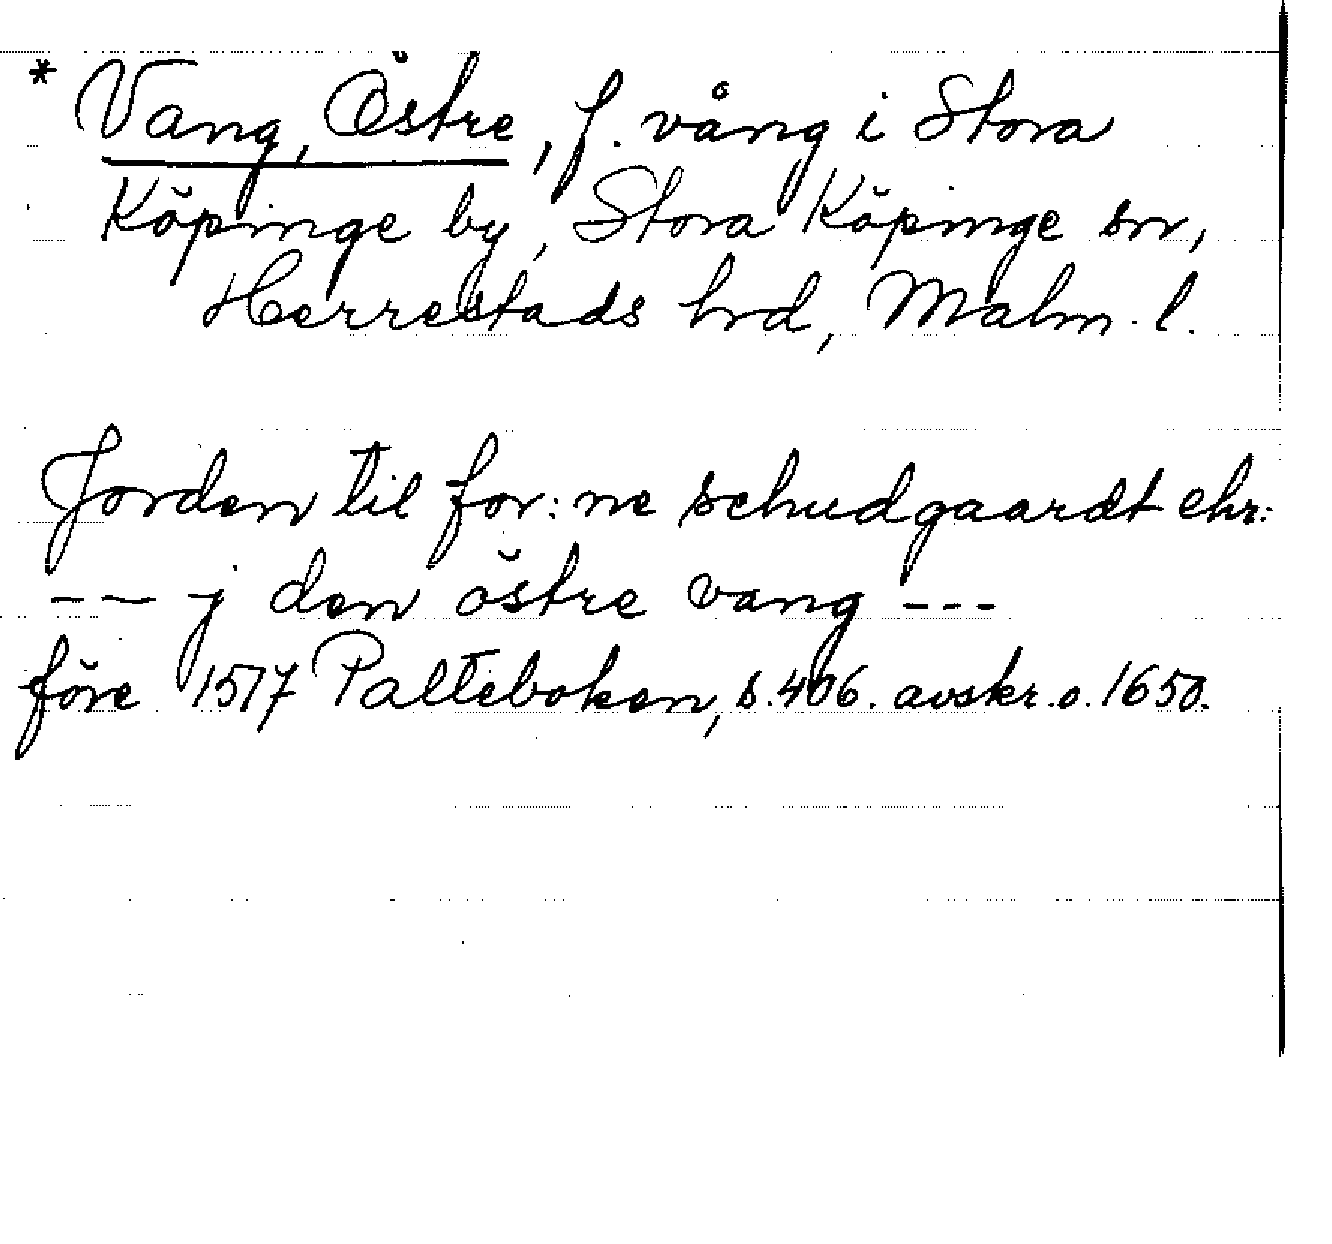 * Vang, Östre, f. vång i Stora
Köpinge by, Stora Köpinge sn,
Herrestads hrd, Malm. l.
Jorden til for:ne schudgaardt ehr:
--- j den östre vang ---
före 1517 Palteboken, s. 406. avskr. o. 1650.